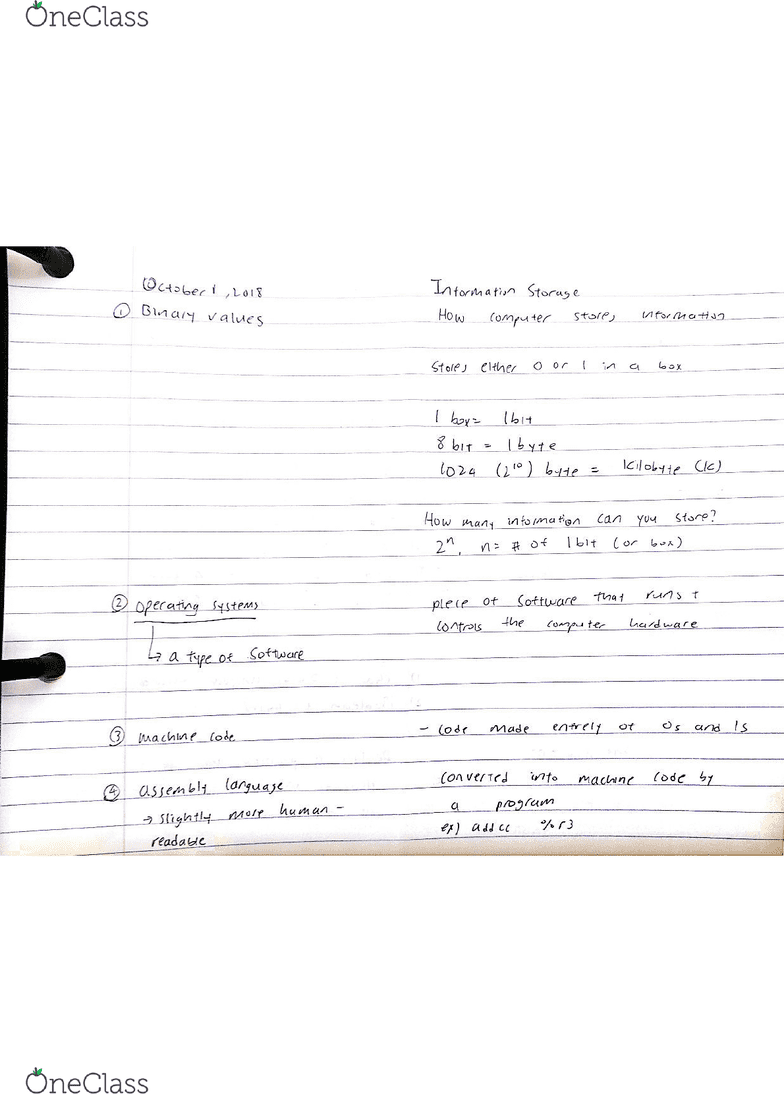 OneClass
October 1, 2018
Information Storage
① Binary values
How computer stores information
Stores either 0 or 1 in a box
1 box = 1bit
8 bit = 1 byte
1024 (2^10) byte = kilobyte (K)
How many information can you store?
2^n, n = # of 1 bit (or box)
② Operating systems
piece of software that runs +
controls the computer hardware
↳ a type of software
③ machine code
- code made entirely of 0s and 1s
④ assembly language
converted into machine code by
→ slightly more human-
a program
readable
ex) addcc %r3
OneClass